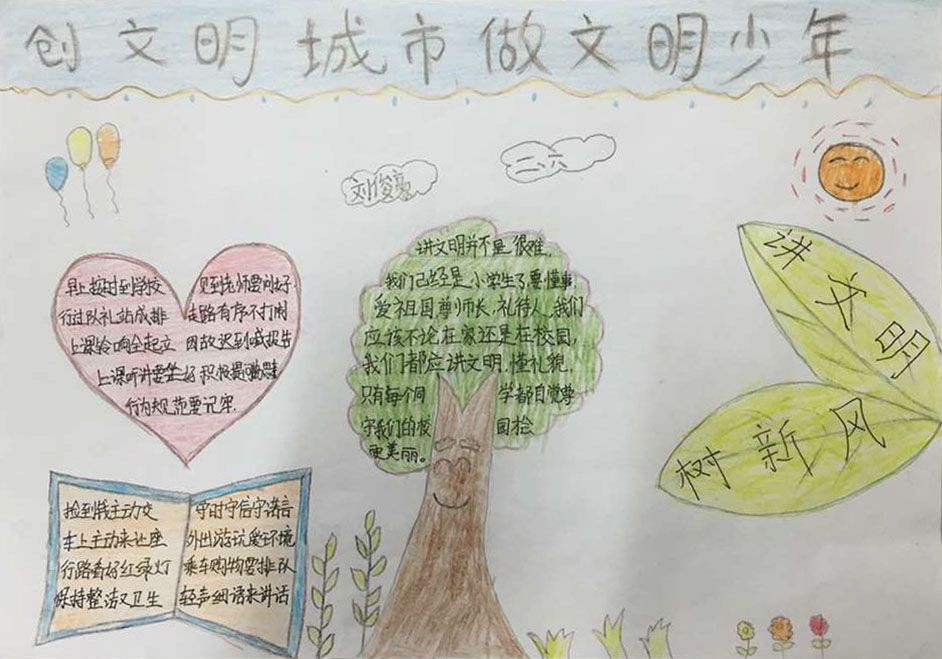 创文明城市做文明少年
刘俊豪
二、六
早上按时到学校 见到老师要问好
行过队礼站成排 走路有序不打闹
上课铃响全起立 因故迟到喊报告
上课听讲要坐好 积极提问勤思
行为规范要记牢.
讲文明并不是很难,
我们已经是小学生了,要懂事
爱祖国尊师长,礼待人,我们
应该不论在家还是在校园,
我们都应讲文明,懂礼貌,
只有每个同 学都自觉尊
守我们的校 园桧
更美丽。
讲文明
树新风
捡到钱主动交 守时守信守诺言
车上主动来让座 外出游玩爱环境
行路看好红绿灯 乘车购物要排队
保持整洁又卫生 轻声细语来讲话